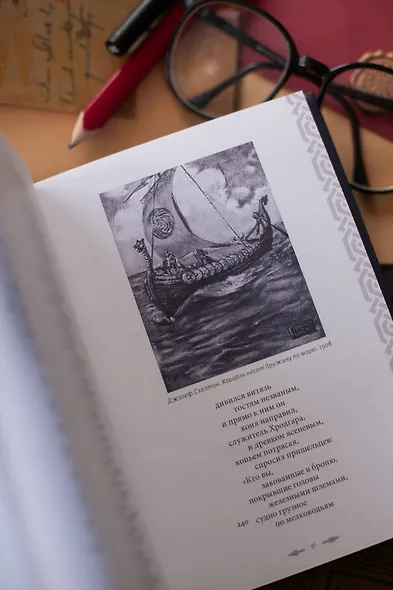 Джозеф Скелтон. Корабль несет дружину по морю. 1908
дивился витязь
гостям незваным,
и прямо к ним он
коня направил,
служитель Хродгара,
и древком ясеневым,
копьем потрясая,
спросил пришельцев:
«Кто вы,
закованные в броню,
покрывшие головы
железными шлемами,
240 судно грузное
по мелководьям
17